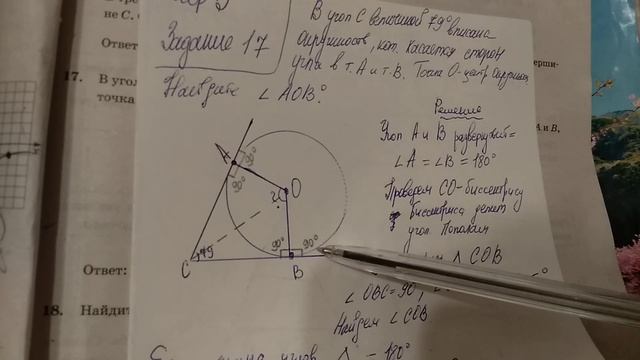 Задание 17
В угол С величиной 79° вписана
окружность, кот. касается сторон
угла в т. А и т. В. Точка О-центр окружн.
Найдите ∠ AOB?
Решение
Угол А и В развернутый =
∠A = ∠B = 180°
Проведем СО-биссектрису
биссектриса делит
угол пополам
Δ COB
∠ OBC = 90°,
Найдем ∠ COB
углов Δ - 180°
A
90°
90°
O
?
79
C
90°
90°
B
не С.
Ответ
17.
В угол
точка
Ответ:
18.
Найдит
А и В,